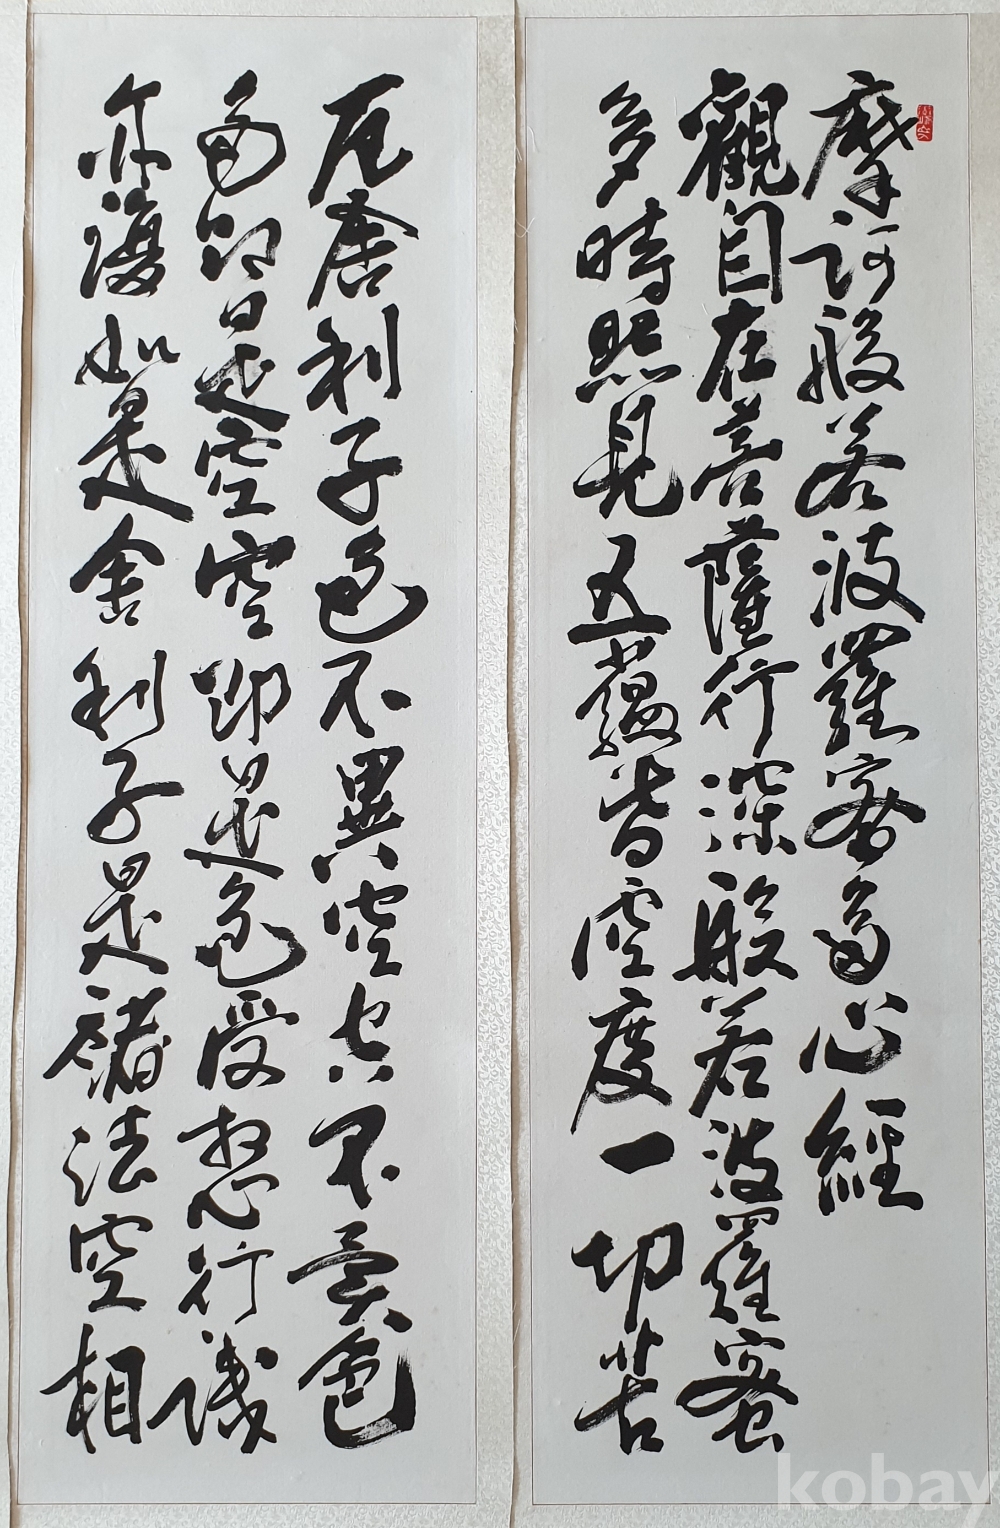 摩訶般若波羅蜜多心經
觀自在菩薩行深般若波羅蜜
多時照見五蘊皆空度一切苦
厄舍利子色不異空空不異色
色即是空空即是色受想行識
亦復如是舍利子是諸法空相
kobay